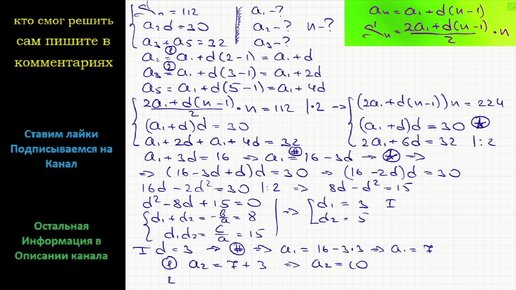 кто смог решить
сам пишите в
комментариях
Ставим лайки
Подписываемся на
Канал
Остальная
Информация в
Описании канала
Sn = 112
a₂d = 30
a₃ + a₅ = 32
a₁ - ?
a₂ - ? n - ?
a₃ - ?
aₙ = a₁ + d(n-1)
Sₙ = (2a₁ + d(n-1))/2 · n
① a₂ = a₁ + d(2-1) = a₁ + d
② a₃ = a₁ + d(3-1) = a₁ + 2d
a₅ = a₁ + d(5-1) = a₁ + 4d
(2a₁ + d(n-1))/2 · n = 112 |·2 → (2a₁ + d(n-1))n = 224
(a₁ + d)d = 30 (a₁ + d)d = 30
a₁ + 2d + a₁ + 4d = 32 2a₁ + 6d = 32 |:2
a₁ + 3d = 16 ⇒ a₁ = 16 - 3d → ⇒
⇒ (16 - 3d + d)d = 30 ⇒ (16 - 2d)d = 30
16d - 2d² = 30 |:2 ⇒ 8d - d² = 15
d² - 8d + 15 = 0
d₁ + d₂ = -b/a = 8
d₁d₂ = c/a = 15
⇒ d₁ = 3 I
d₂ = 5
I d = 3 → ⇒ a₁ = 16 - 3·3 ⇒ a₁ = 7
a₂ = 7 + 3 ⇒ a₂ = 10